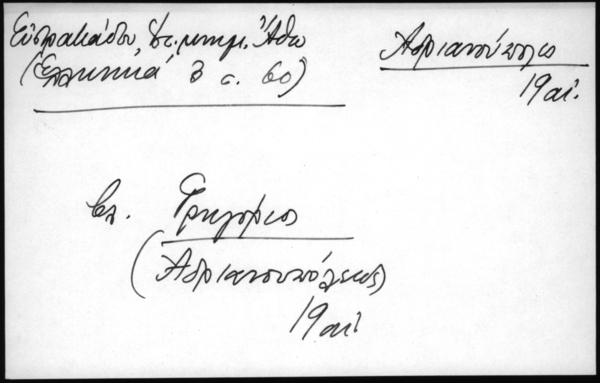 Εὐστρατιάδου, Ἱστ. μνημ. Ἄθω
(Ἑλληνικά 3 σ. 60)
Ἀδριανούπολις
19 αἰ.
βλ. Γρηγόριος
(Ἀδριανουπόλεως)
19 αἰ